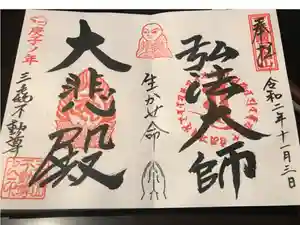 奉拝
弘法大師
令和二年十一月三日
生かせ命
大悲殿
庚子ノ年
三毛不動尊